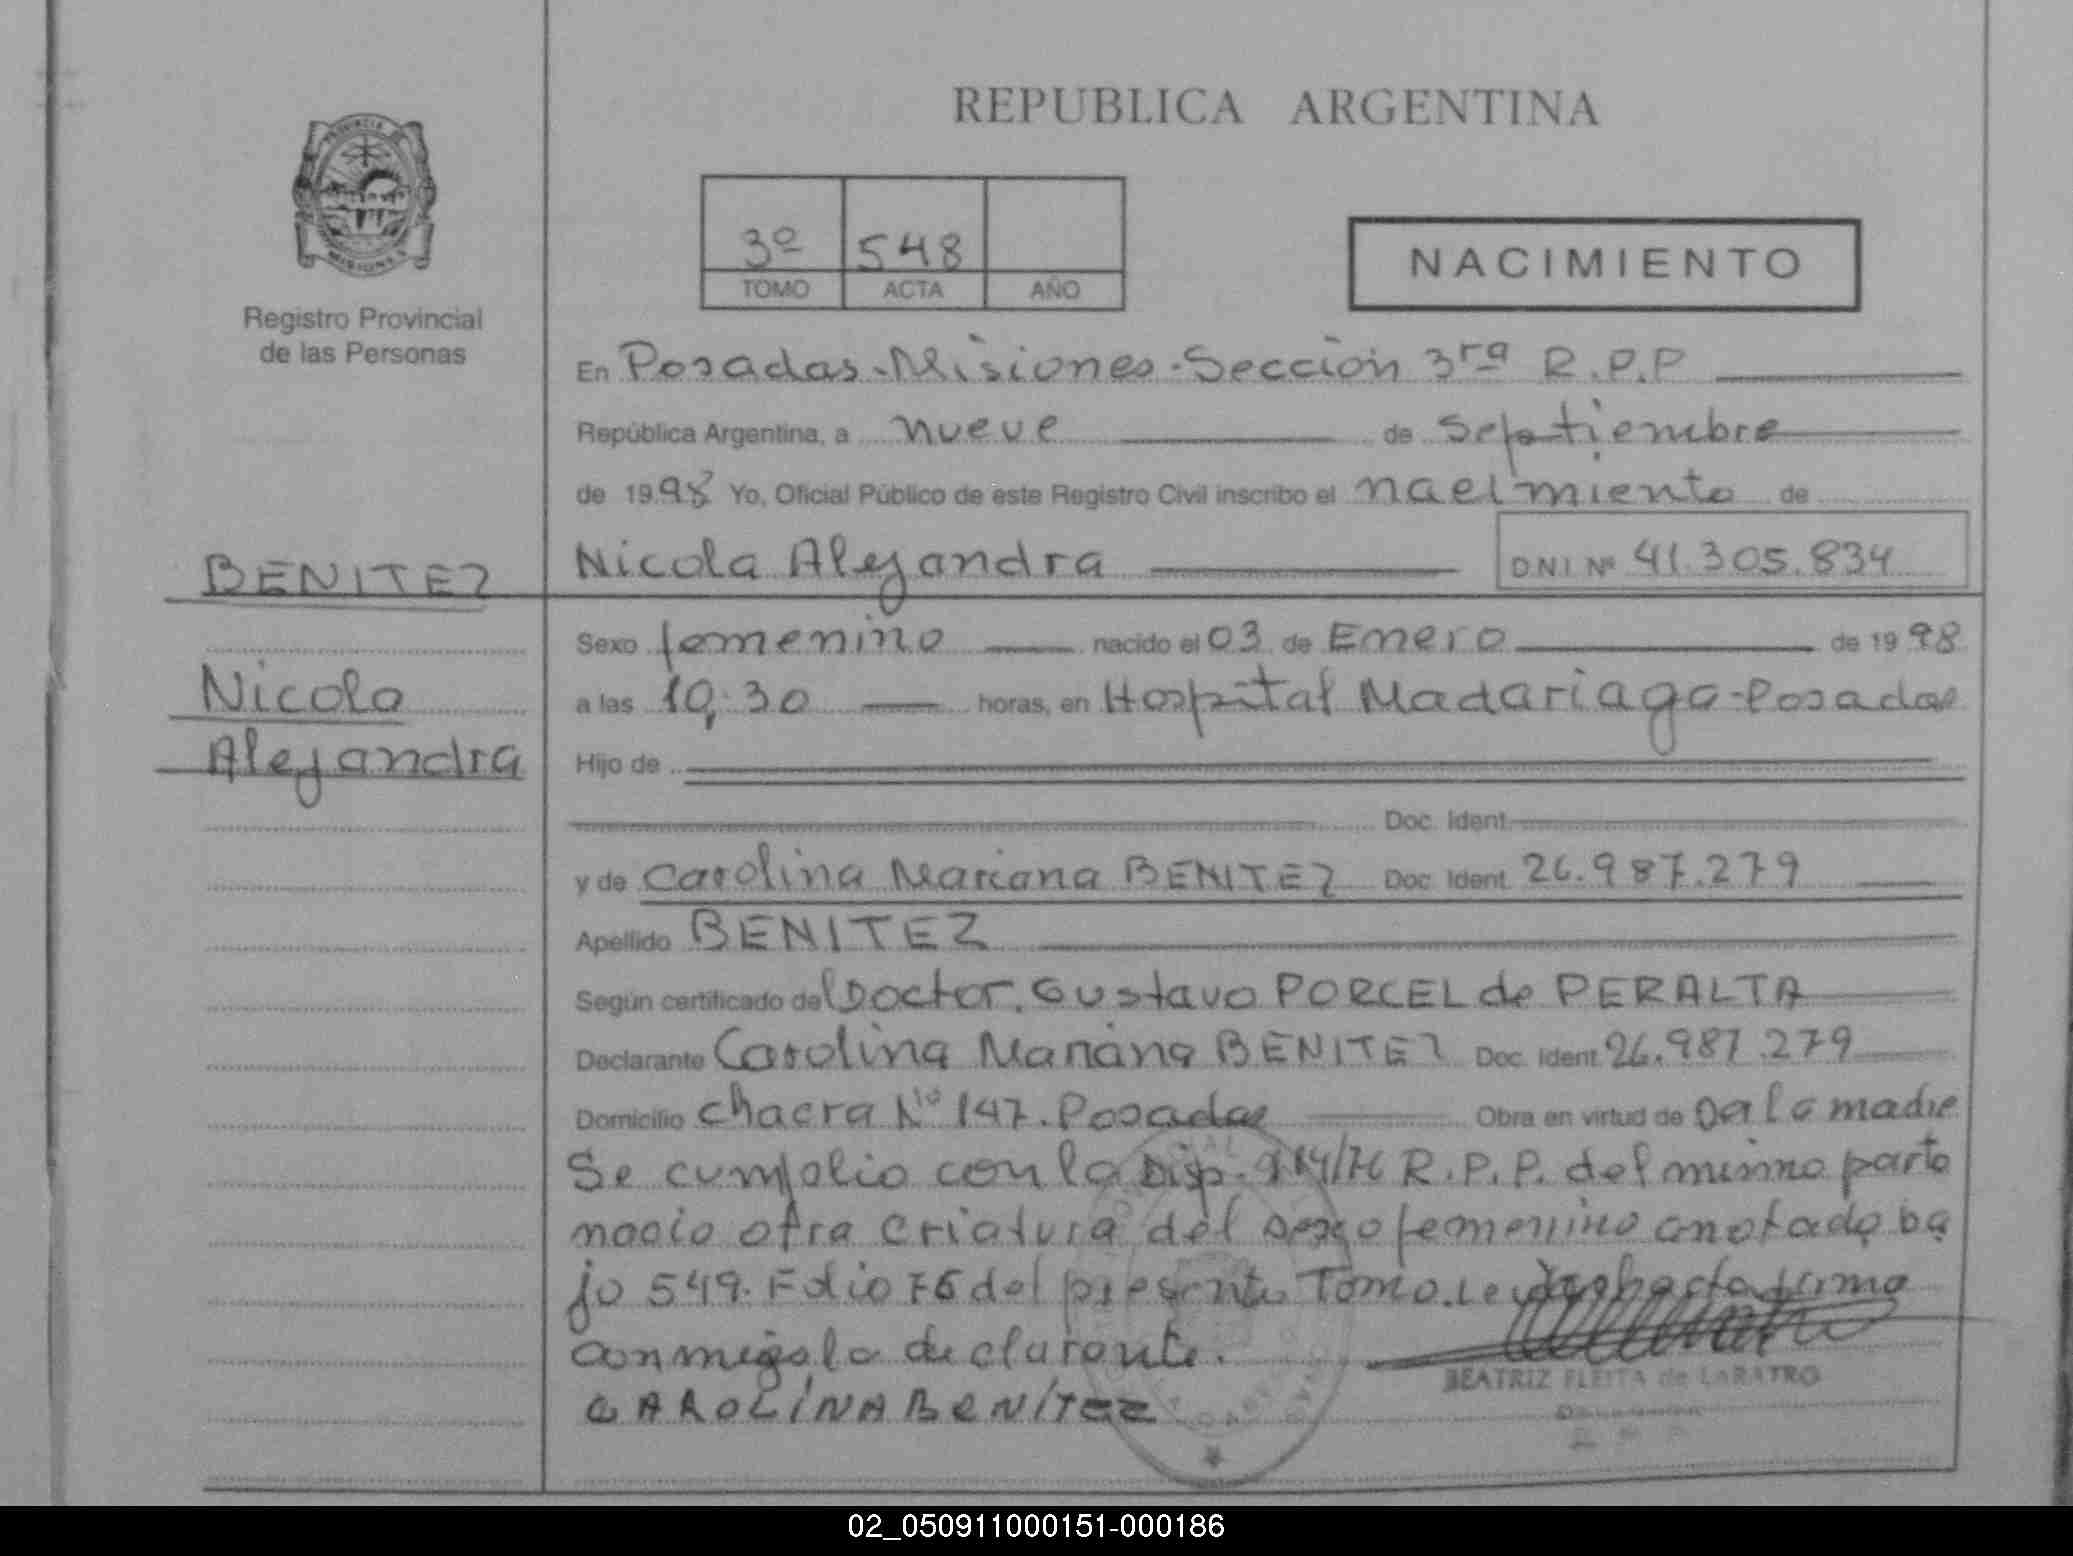 REPUBLICA ARGENTINA
PROVINCIA
MISIONES
Registro Provincial
de las Personas
3º 548
TOMO ACTA AÑO
NACIMIENTO
En Posadas-Misiones-Sección 3ra R.P.P
República Argentina, a nueve de septiembre
de 1998 Yo, Oficial Público de este Registro Civil inscribo el nacimiento de
BENITEZ
Nicola Alejandra DNI Nº 41.305.834
Nicola
Alejandra
Sexo femenino nacido el 03 de Enero de 1998
a las 10:30 horas, en Hospital Madariaga-Posadas
Hijo de
Doc. Ident.
y de Carolina Mariana BENITEZ Doc. Ident. 26.987.279
Apellido BENITEZ
Según certificado del Doctor. Gustavo PORCEL de PERALTA
Declarante Carolina Mariana BENITEZ Doc. Ident. 26.987.279
Domicilio chacra Nº 147. Posadas Obra en virtud de Da la madre
Se cumplio con la Disp. R.P.P. del mismo parto
nacio otra criatura del sexo femenino anotada ba
jo 549. Folio 76 del presente Tomo. Leida acta firma
conmigo la declarante.
CAROLINA BENÍTEZ
BEATRIZ FLEITA de LARATRO
02_050911000151-000186